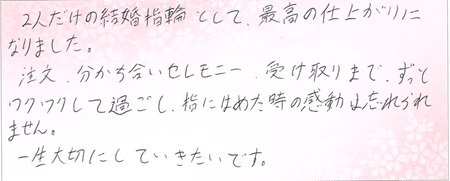 2人だけの結婚指輪として、最高の仕上がりに
なりました。
注文、分かち合いセレモニー、受け取りまで、ずっと
ワクワクして過ごし、指にはめた時の感動は忘れられ
ません。
一生大切にしていきたいです。